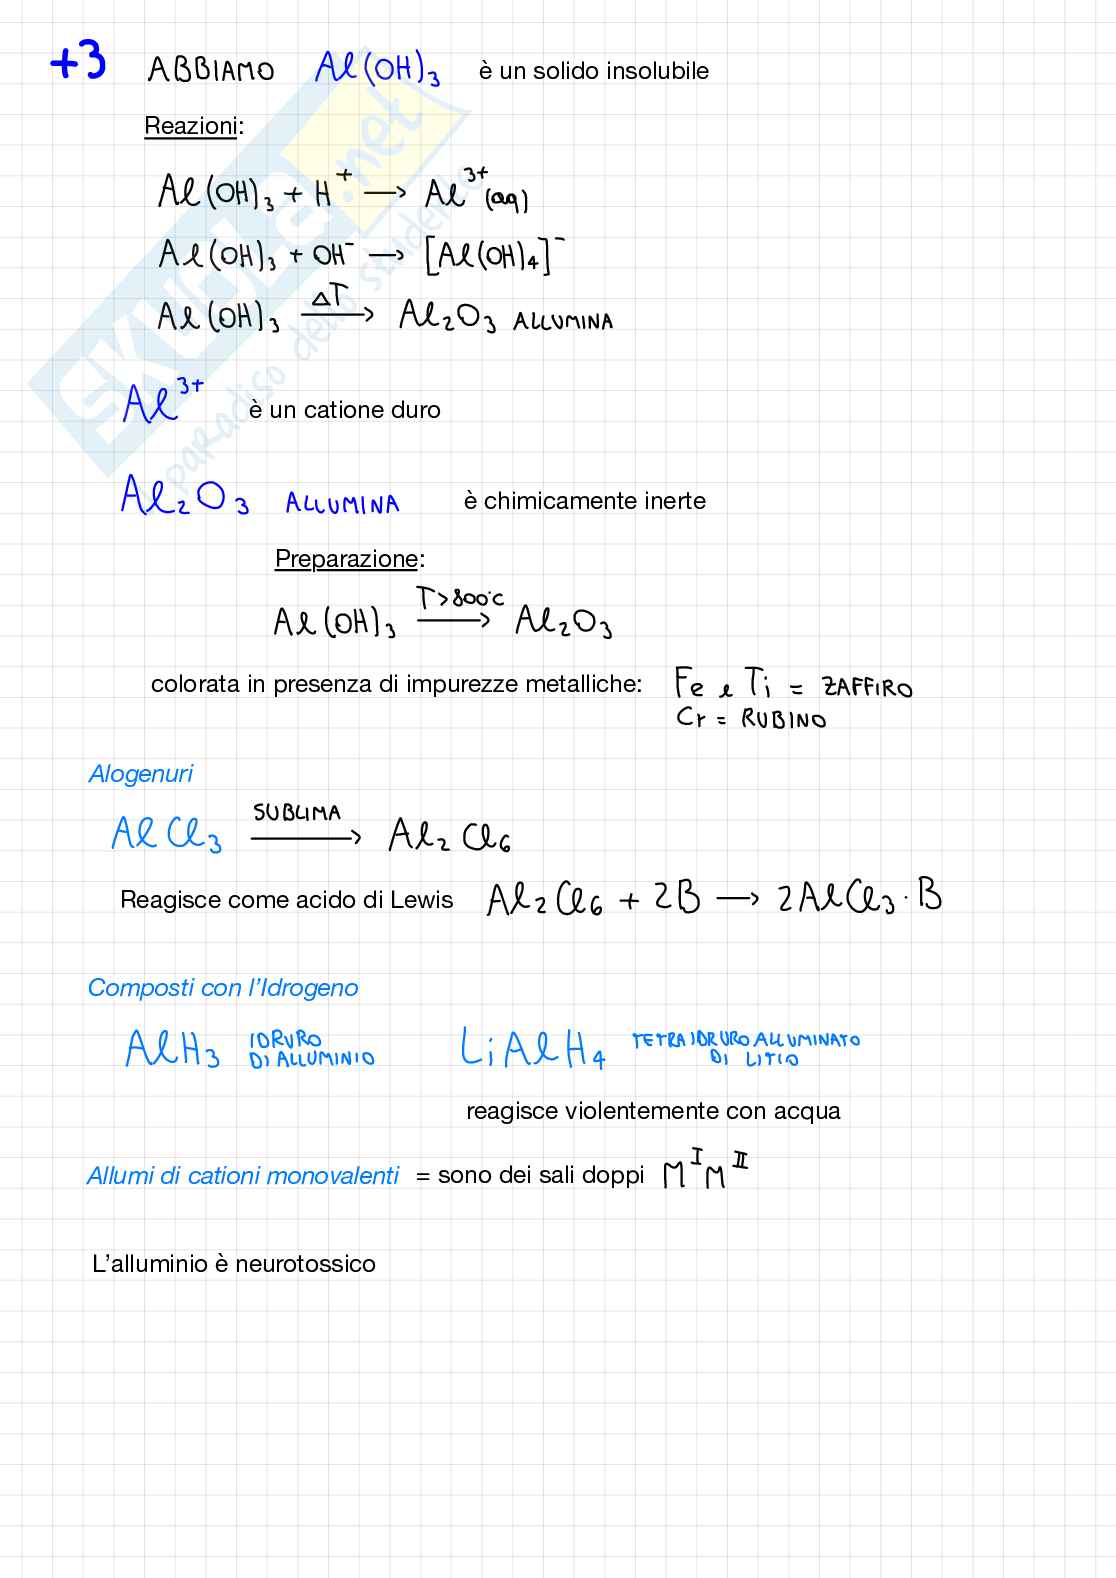 +3 ABBIAMO Al(OH)₃ è un solido insolubile
Reazioni:
Al(OH)₃ + H⁺ → Al³⁺(aq)
Al(OH)₃ + OH⁻ → [Al(OH)₄]⁻
Al(OH)₃ —ΔT→ Al₂O₃ ALLUMINA
Al³⁺ è un catione duro
Al₂O₃ ALLUMINA è chimicamente inerte
Preparazione:
Al(OH)₃ —T>800°C→ Al₂O₃
colorata in presenza di impurezze metalliche: Fe e Ti = ZAFFIRO
Cr = RUBINO
Alogenuri
AlCl₃ —SUBLIMA→ Al₂Cl₆
Reagisce come acido di Lewis Al₂Cl₆ + 2B → 2AlCl₃·B
Composti con l'Idrogeno
AlH₃ IDRURO DI ALLUMINIO LiAlH₄ TETRAIDRUROALLUMINATO DI LITIO
reagisce violentemente con acqua
Allumi di cationi monovalenti = sono dei sali doppi Mᴵ Mᴵᴵ
L'alluminio è neurotossico
SKUOLA.net
paradiso dello studente